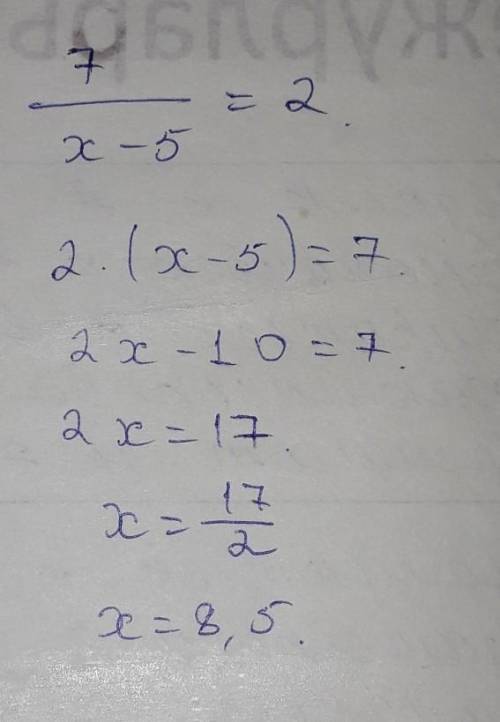 7/(x-5) = 2.
2·(x-5)=7.
2x-10=7.
2x=17.
x=17/2
x=8,5.